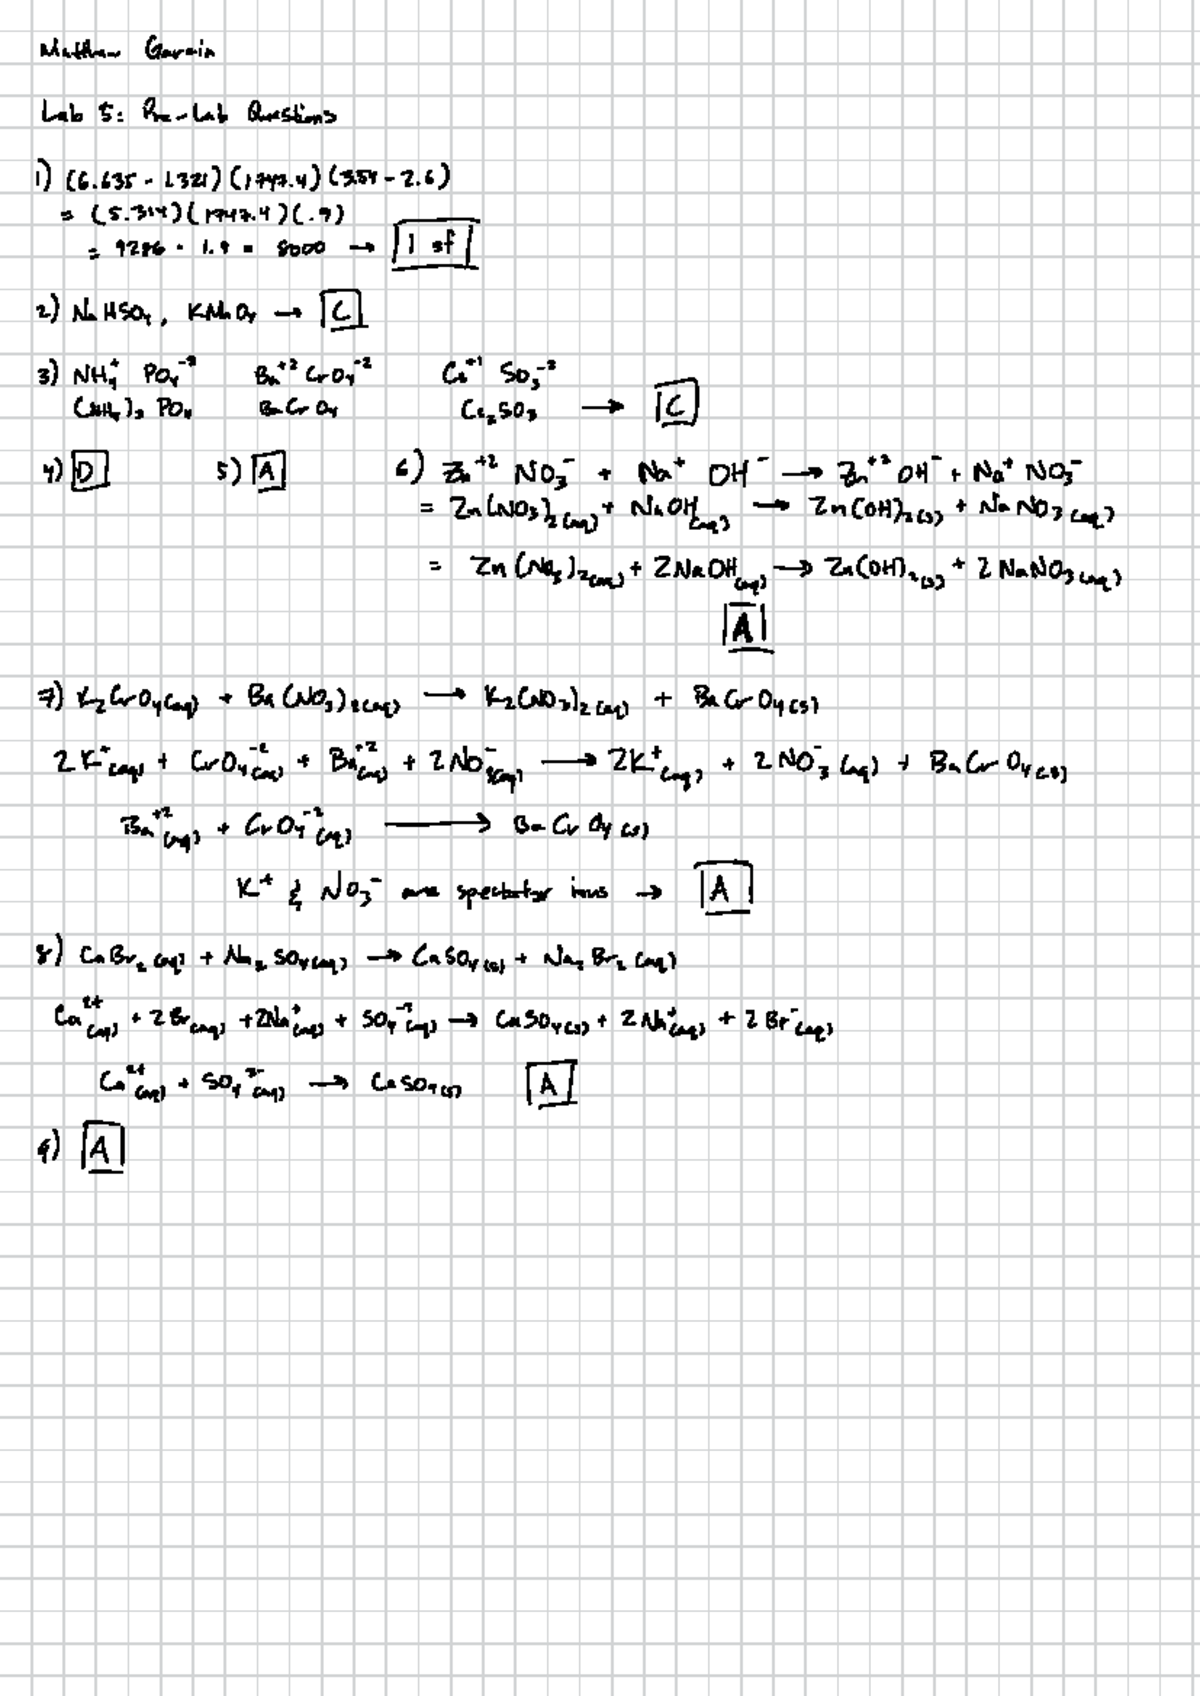 Matthew
Lab 5: Pre-Lab Questions
1) (6.635 - 1.321) (1747.4) (3.54 - 2.6)
= (5.314) (1747.4) (.9)
= 9286 · 1.9 = 8000 → 1 sf
2) NaHSO₄, KMnO₄ → C
3) NH₄⁺ PO₄⁻³ Ba⁺² CrO₄⁻² Cs⁺¹ SO₃⁻²
(NH₄)₃ PO₄ BaCrO₄ Cs₂SO₃ → C
4) D 5) A 6) Zn⁺² NO₃⁻ + Na⁺ OH⁻ → Zn⁺² OH⁻ + Na⁺ NO₃⁻
= Zn(NO₃)₂(aq) + NaOH(aq) → Zn(OH)₂(s) + NaNO₃(aq)
= Zn(NO₃)₂(aq) + 2NaOH(aq) → Zn(OH)₂(s) + 2NaNO₃(aq)
A
7) K₂CrO₄(aq) + Ba(NO₃)₂(aq) → K₂(NO₃)₂(aq) + BaCrO₄(s)
2K⁺(aq) + CrO₄⁻²(aq) + Ba⁺²(aq) + 2NO₃⁻(aq) → 2K⁺(aq) + 2NO₃⁻(aq) + BaCrO₄(s)
Ba⁺²(aq) + CrO₄⁻²(aq) → BaCrO₄(s)
K⁺ & NO₃⁻ are spectator ions → A
8) CaBr₂(aq) + Na₂SO₄(aq) → CaSO₄(s) + Na₂Br₂(aq)
Ca²⁺(aq) + 2Br(aq) + 2Na⁺(aq) + SO₄⁻²(aq) → CaSO₄(s) + 2Na⁺(aq) + 2Br⁻(aq)
Ca²⁺(aq) + SO₄²⁻(aq) → CaSO₄(s) A
9) A